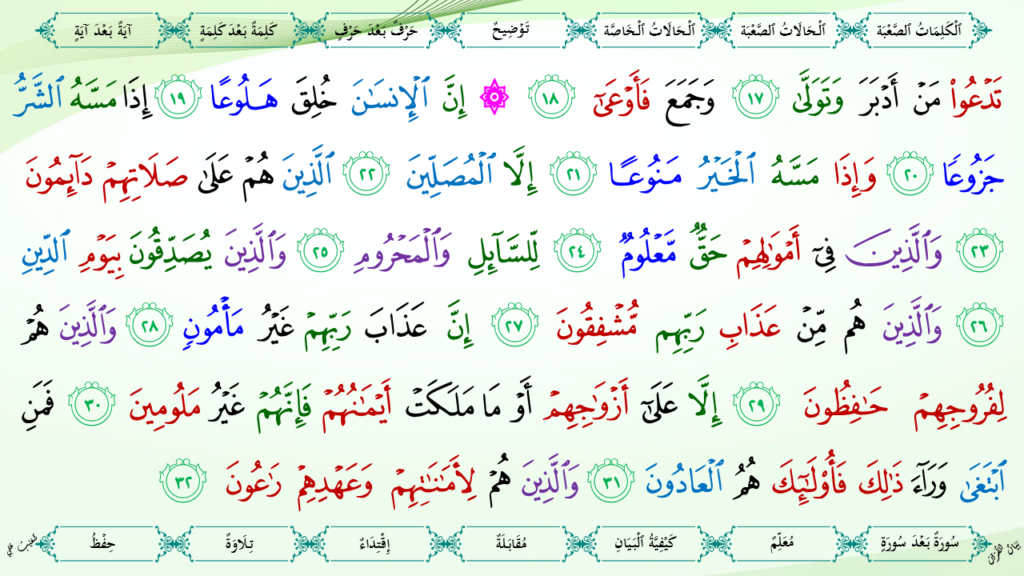 اَلْكَلِمَاتُ الصَّعْبَة اَلْحَالَاتُ الصَّعْبَة اَلْحَالَاتُ الْخَاصَّة تَوْضِيحٌ حَرْفٌ بَعْدَ حَرْفٍ كَلِمَةٌ بَعْدَ كَلِمَةٍ آيَةٌ بَعْدَ آيَةٍ
تَدْعُوا۟ مَنْ أَدْبَرَ وَتَوَلَّىٰ ١٧ وَجَمَعَ فَأَوْعَىٰٓ ١٨ ۞ إِنَّ ٱلْإِنسَـٰنَ خُلِقَ هَلُوعًا ١٩ إِذَا مَسَّهُ ٱلشَّرُّ
جَزُوعًا ٢٠ وَإِذَا مَسَّهُ ٱلْخَيْرُ مَنُوعًا ٢١ إِلَّا ٱلْمُصَلِّينَ ٢٢ ٱلَّذِينَ هُمْ عَلَىٰ صَلَاتِهِمْ دَآئِمُونَ
٢٣ وَٱلَّذِينَ فِىٓ أَمْوَٰلِهِمْ حَقٌّ مَّعْلُومٌ ٢٤ لِّلسَّآئِلِ وَٱلْمَحْرُومِ ٢٥ وَٱلَّذِينَ يُصَدِّقُونَ بِيَوْمِ ٱلدِّينِ
٢٦ وَٱلَّذِينَ هُم مِّنْ عَذَابِ رَبِّهِم مُّشْفِقُونَ ٢٧ إِنَّ عَذَابَ رَبِّهِمْ غَيْرُ مَأْمُونٍ ٢٨ وَٱلَّذِينَ هُمْ
لِفُرُوجِهِمْ حَـٰفِظُونَ ٢٩ إِلَّا عَلَىٰٓ أَزْوَٰجِهِمْ أَوْ مَا مَلَكَتْ أَيْمَـٰنُهُمْ فَإِنَّهُمْ غَيْرُ مَلُومِينَ ٣٠ فَمَنِ
ٱبْتَغَىٰ وَرَآءَ ذَٰلِكَ فَأُو۟لَـٰٓئِكَ هُمُ ٱلْعَادُونَ ٣١ وَٱلَّذِينَ هُمْ لِأَمَـٰنَـٰتِهِمْ وَعَهْدِهِمْ رَٰعُونَ ٣٢
سُورَةٌ بَعْدَ سُورَةٍ مُعَلِّمٌ كَيْفِيَّةُ الْبَيَانِ مُقَابَلَةٌ إِقْتِدَاءٌ تِلَاوَةٌ حِفْظٌ